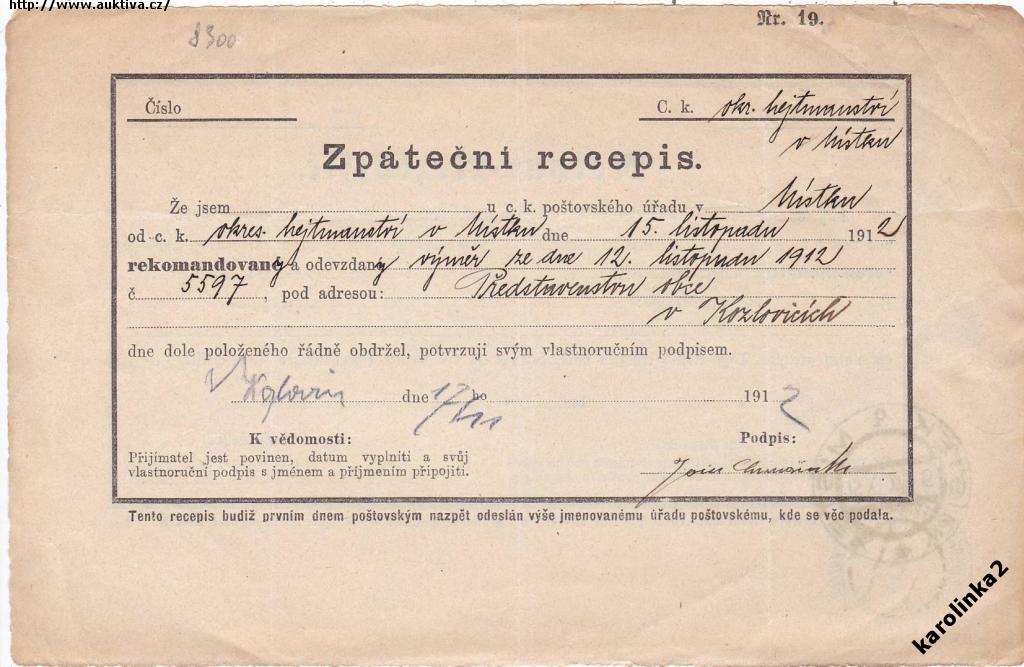 http://www.auktiva.cz/
Nr. 19.
8300
Číslo
C. k. okr. hejtmanství
v Místku
Zpáteční recepis.
Že jsem u c. k. poštovského úřadu v Místku
od c. k. okres. hejtmanství v Místku dne 15. listopadu 1912
rekomandovaný a odevzdaný výměr ze dne 12. listopadu 1912
č 5597, pod adresou: Představenstvu obce
v Kozlovicích
dne dole položeného řádně obdržel, potvrzuji svým vlastnoručním podpisem.
V dne 17/11 ho 1912
K vědomosti:
Podpis:
Přijímatel jest povinen, datum vyplniti a svůj
vlastnoruční podpis s jménem a příjmením připojiti.
Tento recepis budiž prvním dnem poštovským nazpět odeslán výše jmenovanému úřadu poštovskému, kde se věc podala.
karolinka2